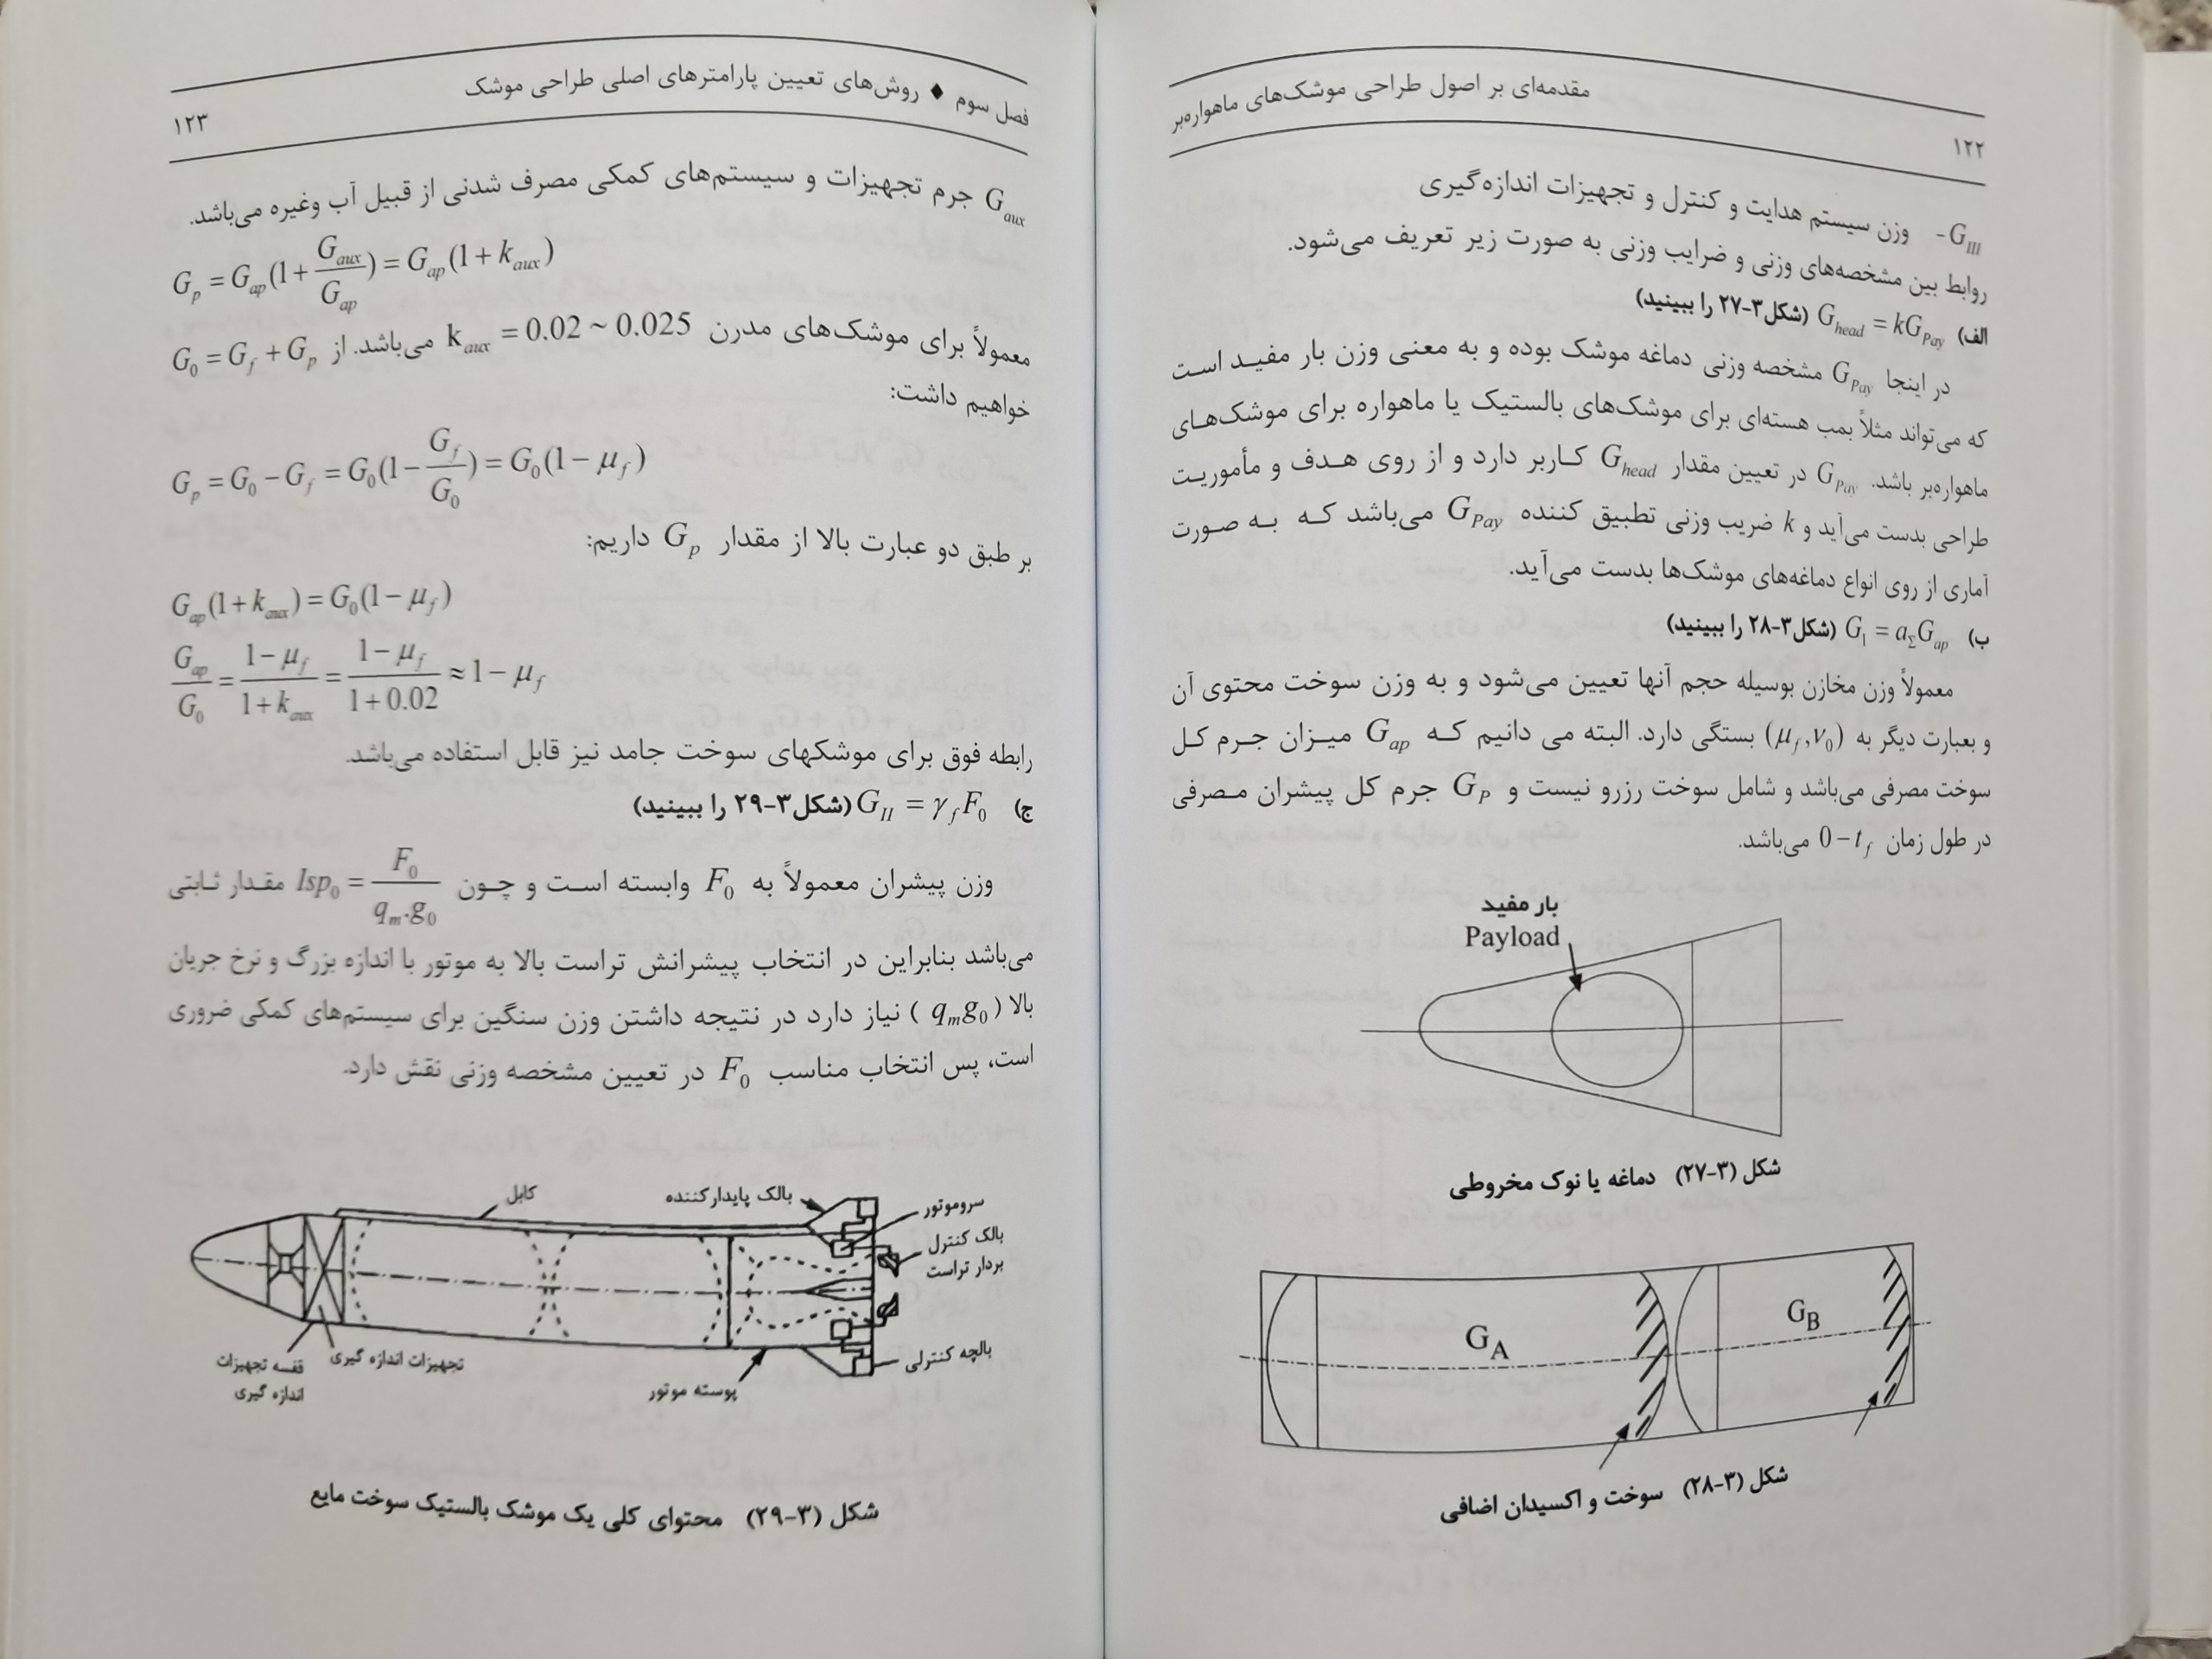 مقدمه‌ای بر اصول طراحی موشک‌های ماهواره‌بر
۱۲۲
G_III - وزن سیستم هدایت و کنترل و تجهیزات اندازه‌گیری
روابط بین مشخصه‌های وزنی و ضرایب وزنی به صورت زیر تعریف می‌شود.
الف) G_head = kG_Pay (شکل۳-۲۷ را ببینید)
در اینجا G_Pay مشخصه وزنی دماغه موشک بوده و به معنی وزن بار مفید است
که می‌تواند مثلاً بمب هسته‌ای برای موشک‌های بالستیک یا ماهواره برای موشک‌های
ماهواره‌بر باشد. G_Pay در تعیین مقدار G_head کاربر دارد و از روی هدف و مأموریت
طراحی بدست می‌آید و k ضریب وزنی تطبیق کننده G_Pay می‌باشد که به صورت
آماری از روی انواع دماغه‌های موشک‌ها بدست می‌آید.
ب) G_I = a_Σ G_ap (شکل۳-۲۸ را ببینید)
معمولاً وزن مخازن بوسیله حجم آنها تعیین می‌شود و به وزن سوخت محتوی آن
و بعبارت دیگر به (μ_f, ν_0) بستگی دارد. البته می دانیم که G_ap میزان جرم کل
سوخت مصرفی می‌باشد و شامل سوخت رزرو نیست و G_P جرم کل پیشران مصرفی
در طول زمان 0 − t_f می‌باشد.
بار مفید
Payload
شکل (۳-۲۷) دماغه یا نوک مخروطی
G_A
G_B
شکل (۳-۲۸) سوخت و اکسیدان اضافی
فصل سوم ♦ روش‌های تعیین پارامترهای اصلی طراحی موشک
۱۲۳
G_aux جرم تجهیزات و سیستم‌های کمکی مصرف شدنی از قبیل آب وغیره می‌باشد.
G_p = G_ap(1 + G_aux/G_ap) = G_ap(1 + k_aux)
معمولاً برای موشک‌های مدرن k_aux = 0.02 ~ 0.025 می‌باشد. از G_0 = G_f + G_p
خواهیم داشت:
G_p = G_0 − G_f = G_0(1 − G_f/G_0) = G_0(1 − μ_f)
بر طبق دو عبارت بالا از مقدار G_p داریم:
G_ap(1 + k_aux) = G_0(1 − μ_f)
G_ap/G_0 = (1 − μ_f)/(1 + k_aux) = (1 − μ_f)/(1 + 0.02) ≈ 1 − μ_f
رابطه فوق برای موشکهای سوخت جامد نیز قابل استفاده می‌باشد.
ج) G_II = γ_f F_0 (شکل۳-۲۹ را ببینید)
وزن پیشران معمولاً به F_0 وابسته است و چون Isp_0 = F_0/(q_m.g_0) مقدار ثابتی
می‌باشد بنابراین در انتخاب پیشرانش تراست بالا به موتور با اندازه بزرگ و نرخ جریان
بالا (q_m g_0) نیاز دارد در نتیجه داشتن وزن سنگین برای سیستم‌های کمکی ضروری
است، پس انتخاب مناسب F_0 در تعیین مشخصه وزنی نقش دارد.
کابل
بالک پایدارکننده
سروموتور
بالک کنترل
بردار تراست
بالچه کنترلی
پوسته موتور
تجهیزات اندازه گیری
قفسه تجهیزات
اندازه گیری
شکل (۳-۲۹) محتوای کلی یک موشک بالستیک سوخت مایع